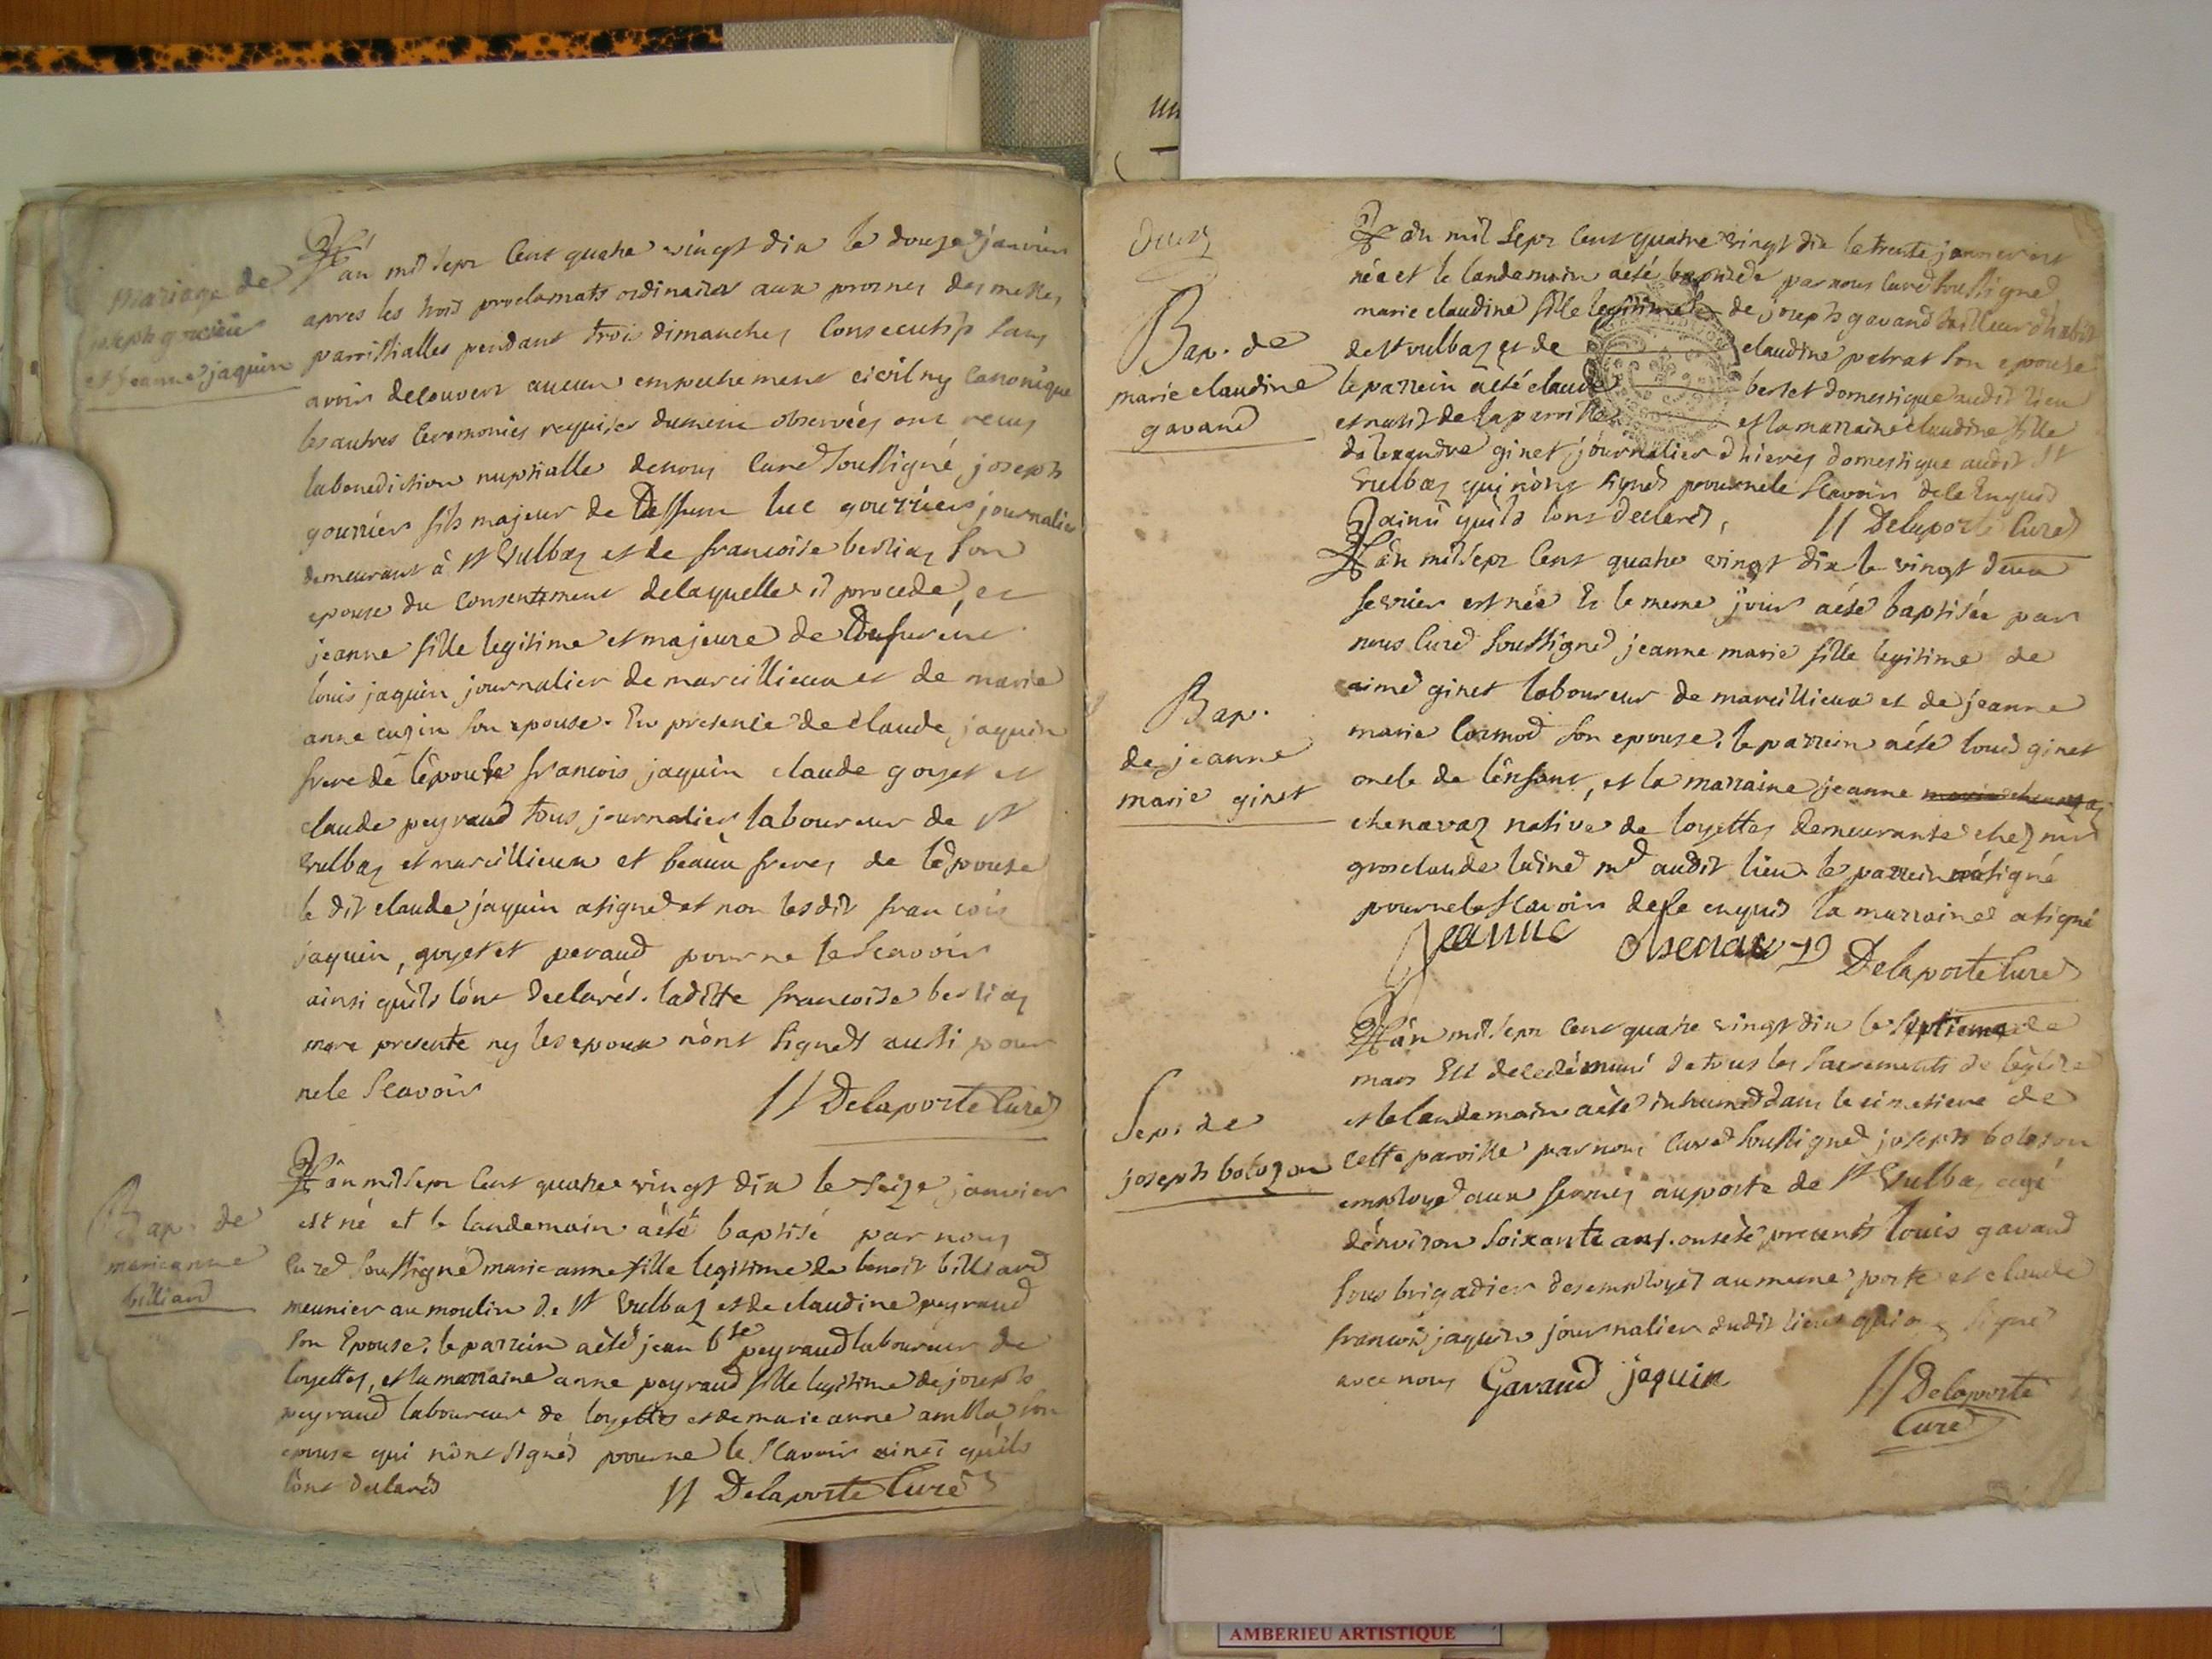 Mariage de
joseph gourier
et jeanne jaquin
L'an mil sept cent quatre vingt dix le douze janvier
apres les trois proclamats ordinaires aux prosnes des messes
parroissialles pendant trois dimanches consecutifs sans
avoir decouvert aucun empechement civil ny canonique
les autres ceremonies requises dument observées ont recus
la benediction nuptialle de nous curé soussigné joseph
gourrier fils majeur de deffunt luc gourrier journalier
demeurant à st Vulbaz et de francoise berliaz son
epouse du consentement de laquelle il procede, et
jeanne fille legitime et majeure de
louis jaquin journalier de marcillieux et de marie
anne cuzin son epouse. En presence de claude jaquin
frere de l'epouse francois jaquin claude goyet et
claude peyraud tous journalier laboureur de st
vulbaz et marcillieux et beaux freres de l'epouse
le dit claude jaquin a signé et non lesdit francois
jaquin, goyet et peraud pour ne le scavoir
ainsi qu'ils l'ont declarés. laditte francoise berliaz
mere presente ny les epoux n'ont signés aussi pour
ne le scavoir
Delaporte Curé
Bap. de
marie anne
billiard
L'an mil sept cent quatre vingt dix le seize janvier
est né et le landemain a été baptisé par nous
curé soussigné marie anne fille legitime de benoit billiard
meunier au moulin de st Vulbaz et de claudine peyraud
son Epouse. le parrein a été jean bte peyraud laboureur de
loyettes, et la marraine anne peyraud fille legitime de joseph
peyraud laboureur de loyettes et de marie anne son
epouse qui n'ont signés pour ne le scavoir ainsi qu'ils
l'ont declarés
Delaporte Curé
Bap. de
marie claudine
gavand
L'an mil sept cent quatre vingt dix le trente janvier est
née et le landemain a été baptisée par nous curé soussigné
marie claudine fille legitime de joseph gavand tailleur d'habit
de st vulbaz et de claudine petrat son epouse
le parrein a été claude berlet domestique audit lieu
et natif de la parroisse et la marraine claudine fille
d'alexandre ginet journalier d'hieres domestique audit st
Vulbaz qui n'ont signés pour ne le scavoir de ce Enquis
ainsi qu'ils l'ont declarés,
Delaporte Curé
Bap.
de jeanne
marie ginet
L'an mil sept cent quatre vingt dix le vingt deux
fevrier est née Et le meme jour a été baptisée par
nous curé soussigné jeanne marie fille légitime de
aimé ginet laboureur de marcillieux et de jeanne
marie cormod son epouse. le parrein a été louis ginet
oncle de l'enfant, et la marraine jeanne
chenavaz native de loyettes demeurante chez mr
grosclaude lainé md audit lieu. le parrein n'a signé
pour ne le scavoir de ce enquis la marraine a signé
jeanne chenavaz Delaporte Curé
Sep. de
joseph bolozon
L'an mil sept cent quatre vingt dix le septieme de
mars Est decedé muni de tous les sacrements de l'eglise
et le landemain a été inhumé dans le cimetiere de
cette paroisse par nous curé soussigné joseph bolozon
employé aux fermes au poste de st Vulbaz agé
d'environ soixante ans. ont été presents louis gavand
sous brigadier des employés au meme poste et claude
francois jaquin journalier dudit lieu qui ont signé
avec nous Gavand jaquin
Delaporte
Curé
AMBERIEU ARTISTIQUE